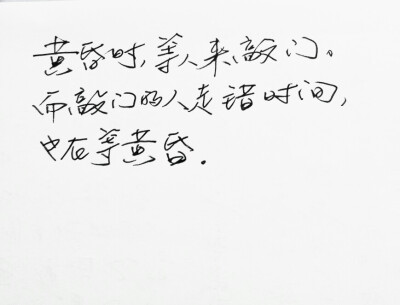 黄昏时,等人来敲门。
而敲门的人走错时间,
也在等黄昏.